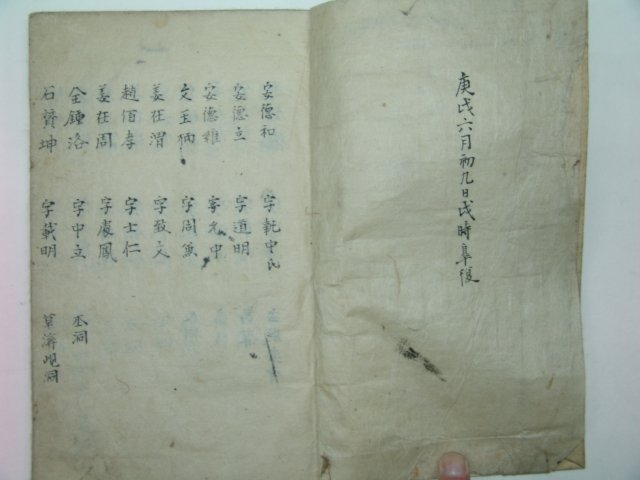 庚戌六月初九日戌時皐復
安德和 字執中氏
安德立 字道明
安德雍 字允中
文玉炳 字周兼
姜在渭 字致文
趙佰孝 字士仁
姜在周 字處鳳
全鍾洛 字中立 丞洞
石贊坤 字載明 草溪 洞